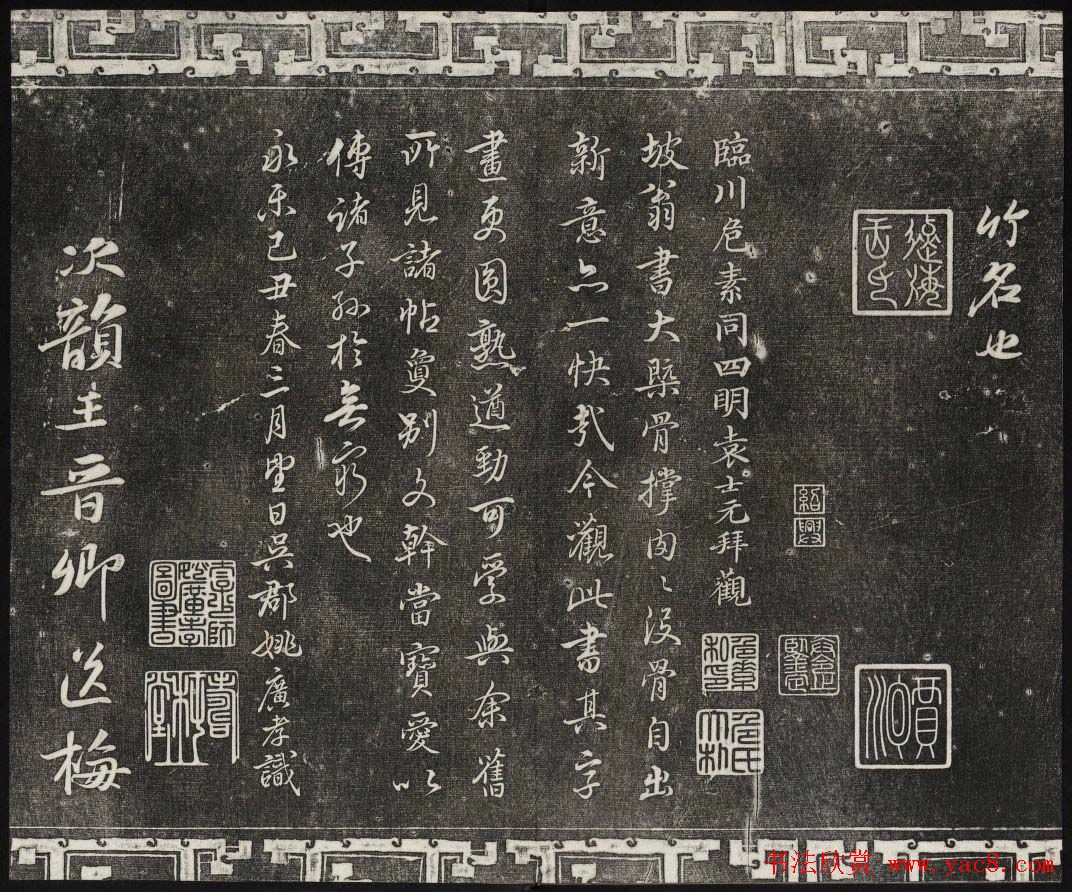 竹名也
臨川危素同四明袁士元拜觀
坡翁書大槩骨撑肉肉没骨自出
新意亦一快哉今觀此書其字
畫更圆熟遒勁可学與余舊
所見諸帖敻别文幹當寶愛以
傳諸子孫於無窮也
永乐己丑春三月望日吴郡姚廣孝識
次韻王晋卿送梅
紹興
危氏
賈
書法欣赏 www.yac8.com